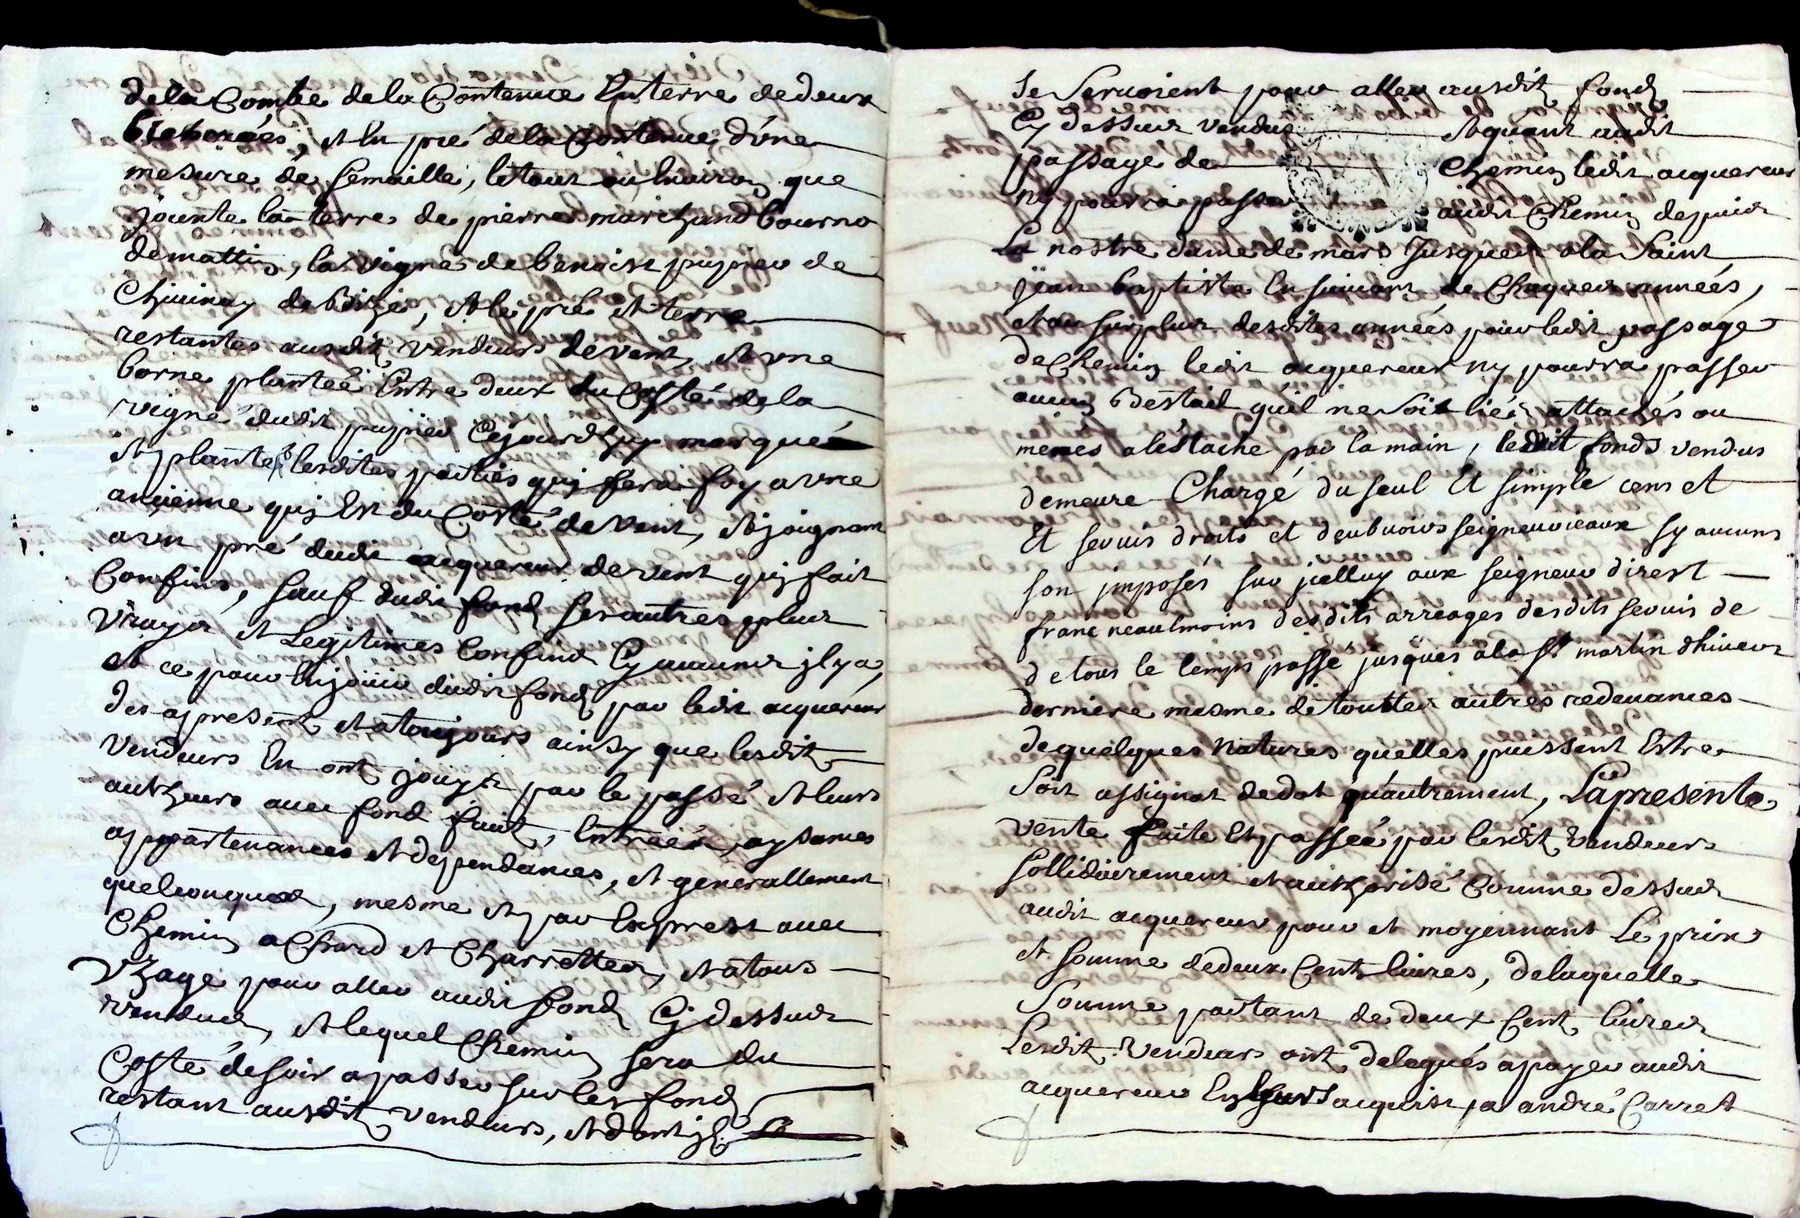 de la Combe de la Contenue En terre de deux
bicherées, et En pré de la Contenue d'une
mesure de semaille, le tout ou Environ que
jouxte la terre de pierre marchand bourno
de mattin, la vigne de benoist pupier de
Chivinay de bize, et le pré et terre
restantes ausdit vendeurs de vent, et vne
borne plantée Entre deux du Costé de la
vigne dudit pupier Cejourdhuy marquée
et plantée lesdites parties quj fera foy a vne
ancienne quj Est du Costé de vent, et joignant
a vn pré dudit acquereur de vent quj fait
Confins, sauf dudit fond ses autres plus
vrayes et Legitimes Confins sy aucuns jl y a,
et ce pour En jouir dudit fond par ledit acquéreur
des apresent et a toujours ainsy que lesdit
vendeurs En ont jouyt par le passé et leurs
autheurs avec fond fruit, Entrées, aysances
appartenances et dépendances, et generallement
quelconques, mesme et par Exprest avec
Chemin a Chard et Charrettes, et a tous
vzage pour aller audit fond Cy dessus
vendus, et lequel Chemin sera du
Costé de soir a passer sur les fond
restant ausdit vendeurs, et dont jl
se Servoient pour aller ausdit fond
Cy dessus vendus et quant audit
passage de Chemin ledit acquereur
ny pourra passer audit Chemin depuis
La nostre dame de mars jusques a la Saint
jean baptiste En suivant de Chaques années,
et au surplus desdites années pour ledit passage
de Chemin ledit acquereur ny pourra passer
aucun Bestail qu'il ne soit liés attachés ou
menes a l'éstache par la main, ledit fonds vendus
demeure Chargé du seul Et simple cens et
Et servis droits et deubvoirs seigneuvieaux sy aucuns
son jmposés suv jcelluy aux seigneuv direst
franc neaulmoins desdits arreages desdits servis de
de tous le temps passé jusques a la st martin dhiver
derniere mesme de touttes autres redevances
de quelques Natures quelles puissent Estre
soit assignat de dot qu'autrement, La presente
vente faite Et passée par lesdit vendeurs
sollidairement et authorisé Comme dessus
audit acquereur pour et moyennant Le prix
et somme de deux Cent livres, de laquelle
Somme partant de deux Cent livres
Lesdit vendeurs ont delegués a payer audit
acquereur En leurs acquist a andré Carret